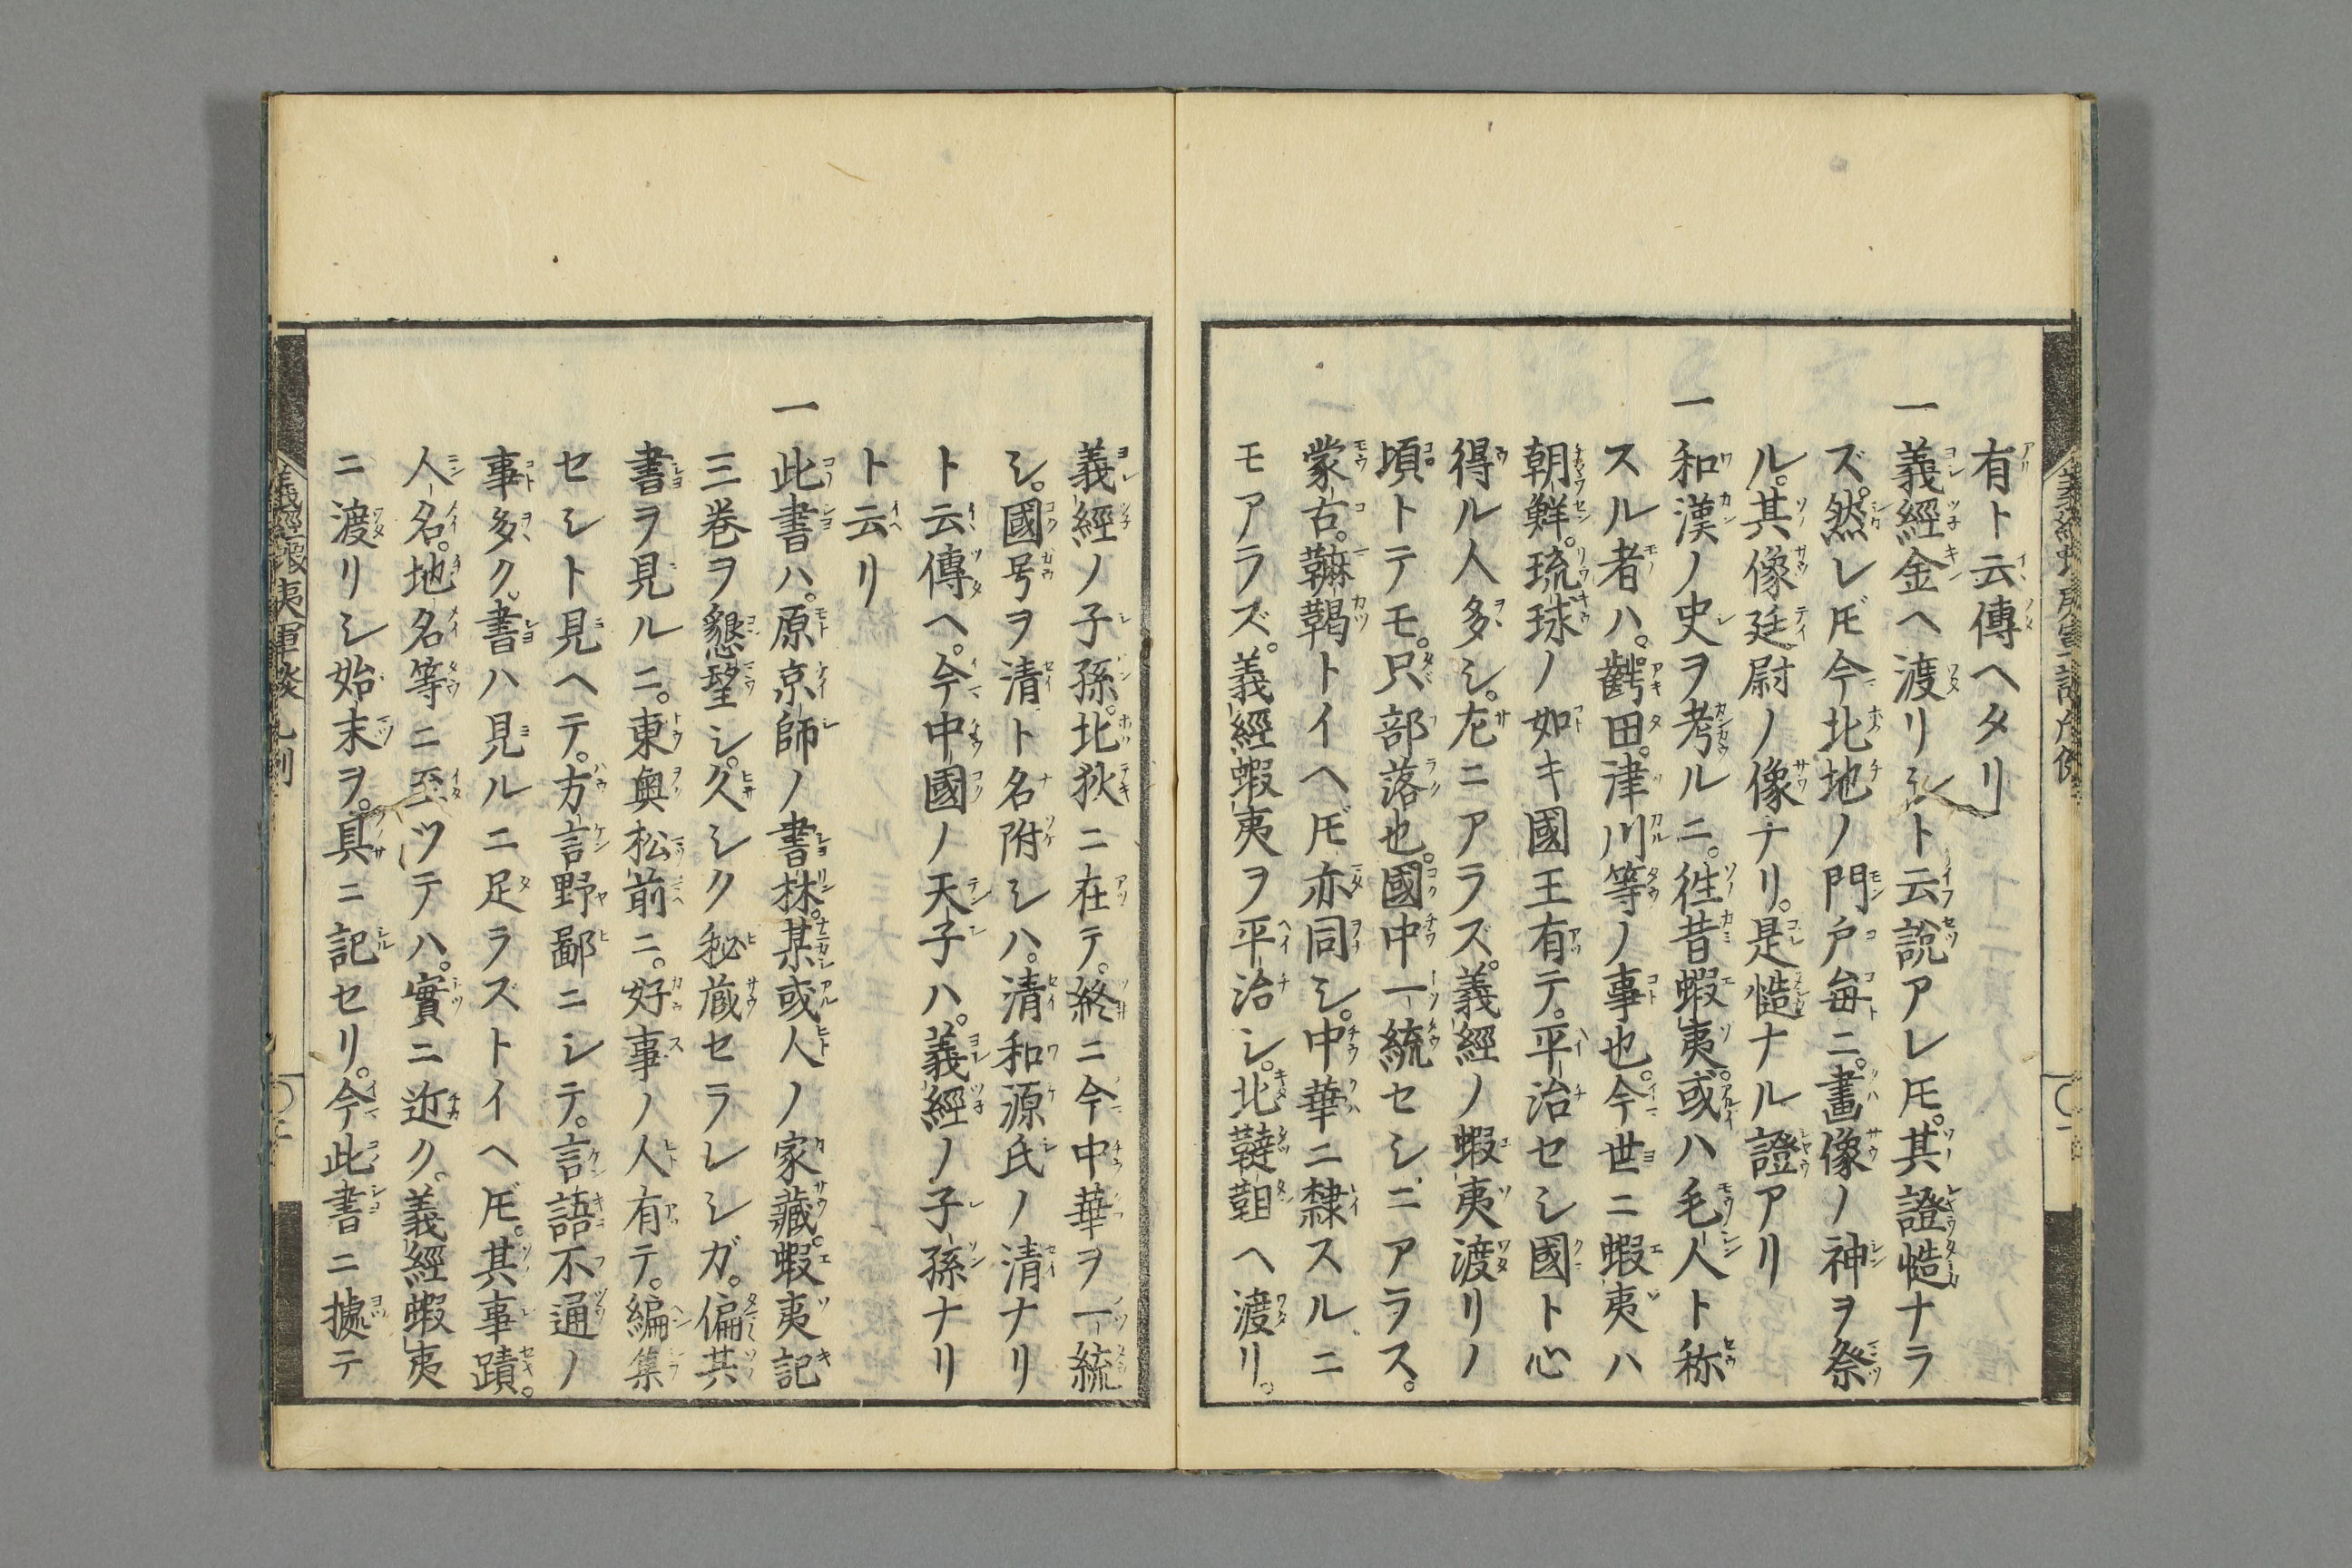 有ト云傳ヘタリ
一義經金ヘ渡リシト云說アレ𪜈。其證慥ナラ
ズ。然レ𪜈今北地ノ門戸每ニ。畫像ノ神ヲ祭
ル。其像廷尉ノ像ナリ。是慥ナル證アリ
一和漢ノ史ヲ考ルニ。徃昔蝦夷。或ハ毛人ト称
スル者ハ。齶田。津川等ノ事也。今世ニ蝦夷ハ
朝鮮。琉球ノ如キ國王有テ。平治セシ國ト心
得ル人多シ。左ニアラズ。義經ノ蝦夷渡リノ
頃トテモ。只部落也。國中一統セシニアラス。
蒙古。靺鞨トイヘ𪜈亦同シ。中華ニ隸スルニ
モアラズ。義經蝦夷ヲ平治シ。北韃靼ヘ渡リ。
義經ノ子孫。北狄ニ在テ。終ニ今中華ヲ一統
シ。國号ヲ清ト名附シハ。清和源氏ノ清ナリ
ト云傳ヘ。今中國ノ天子ハ。義經ノ子孫ナリ
ト云リ
一此書ハ。原京師ノ書林。某或人ノ家藏。蝦夷記
三巻ヲ懇望シ。久シク秘蔵セラレシガ。偏其
書ヲ見ルニ。東奥松前ニ。好事ノ人有テ。編集
セシト見ヘテ。方言野鄙ニシテ。言語不通ノ
事多ク。書ハ見ルニ足ラズトイヘ𪜈。其事蹟。
人名。地名等ニ至ツテハ。實ニ近ク。義經蝦夷
ニ渡リシ始末ヲ。具ニ記セリ。今此書ニ據テ